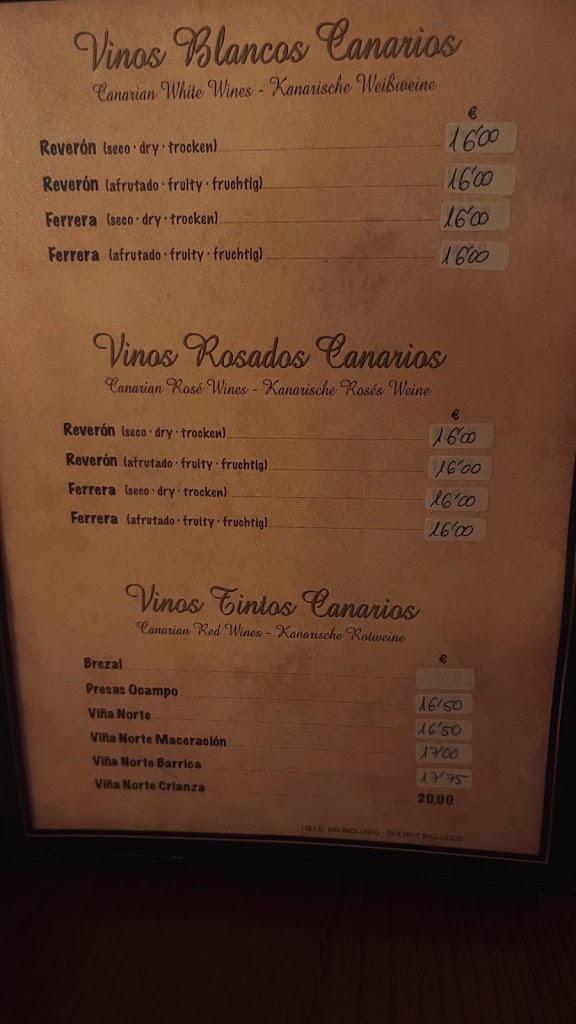 Vinos Blancos Canarios
Canarian White Wines - Kanarische Weißweine
€
Reverón (seco · dry · trocken) 16'00
Reverón (afrutado · fruity · fruchtig) 16'00
Ferrera (seco · dry · trocken) 16'00
Ferrera (afrutado · fruity · fruchtig) 16'00
Vinos Rosados Canarios
Canarian Rosé Wines - Kanarische Rosés Weine
€
Reverón (seco · dry · trocken) 16'00
Reverón (afrutado · fruity · fruchtig) 16'00
Ferrera (seco · dry · trocken) 16'00
Ferrera (afrutado · fruity · fruchtig) 16'00
Vinos Tintos Canarios
Canarian Red Wines - Kanarische Rotweine
€
Brezal
Presas Ocampo 16'50
Viña Norte 16'50
Viña Norte Maceración 17'00
Viña Norte Barrica 17'75
Viña Norte Crianza 20,00
I.G.I.C. NO INCLUIDO - TAX NOT INCLUDED